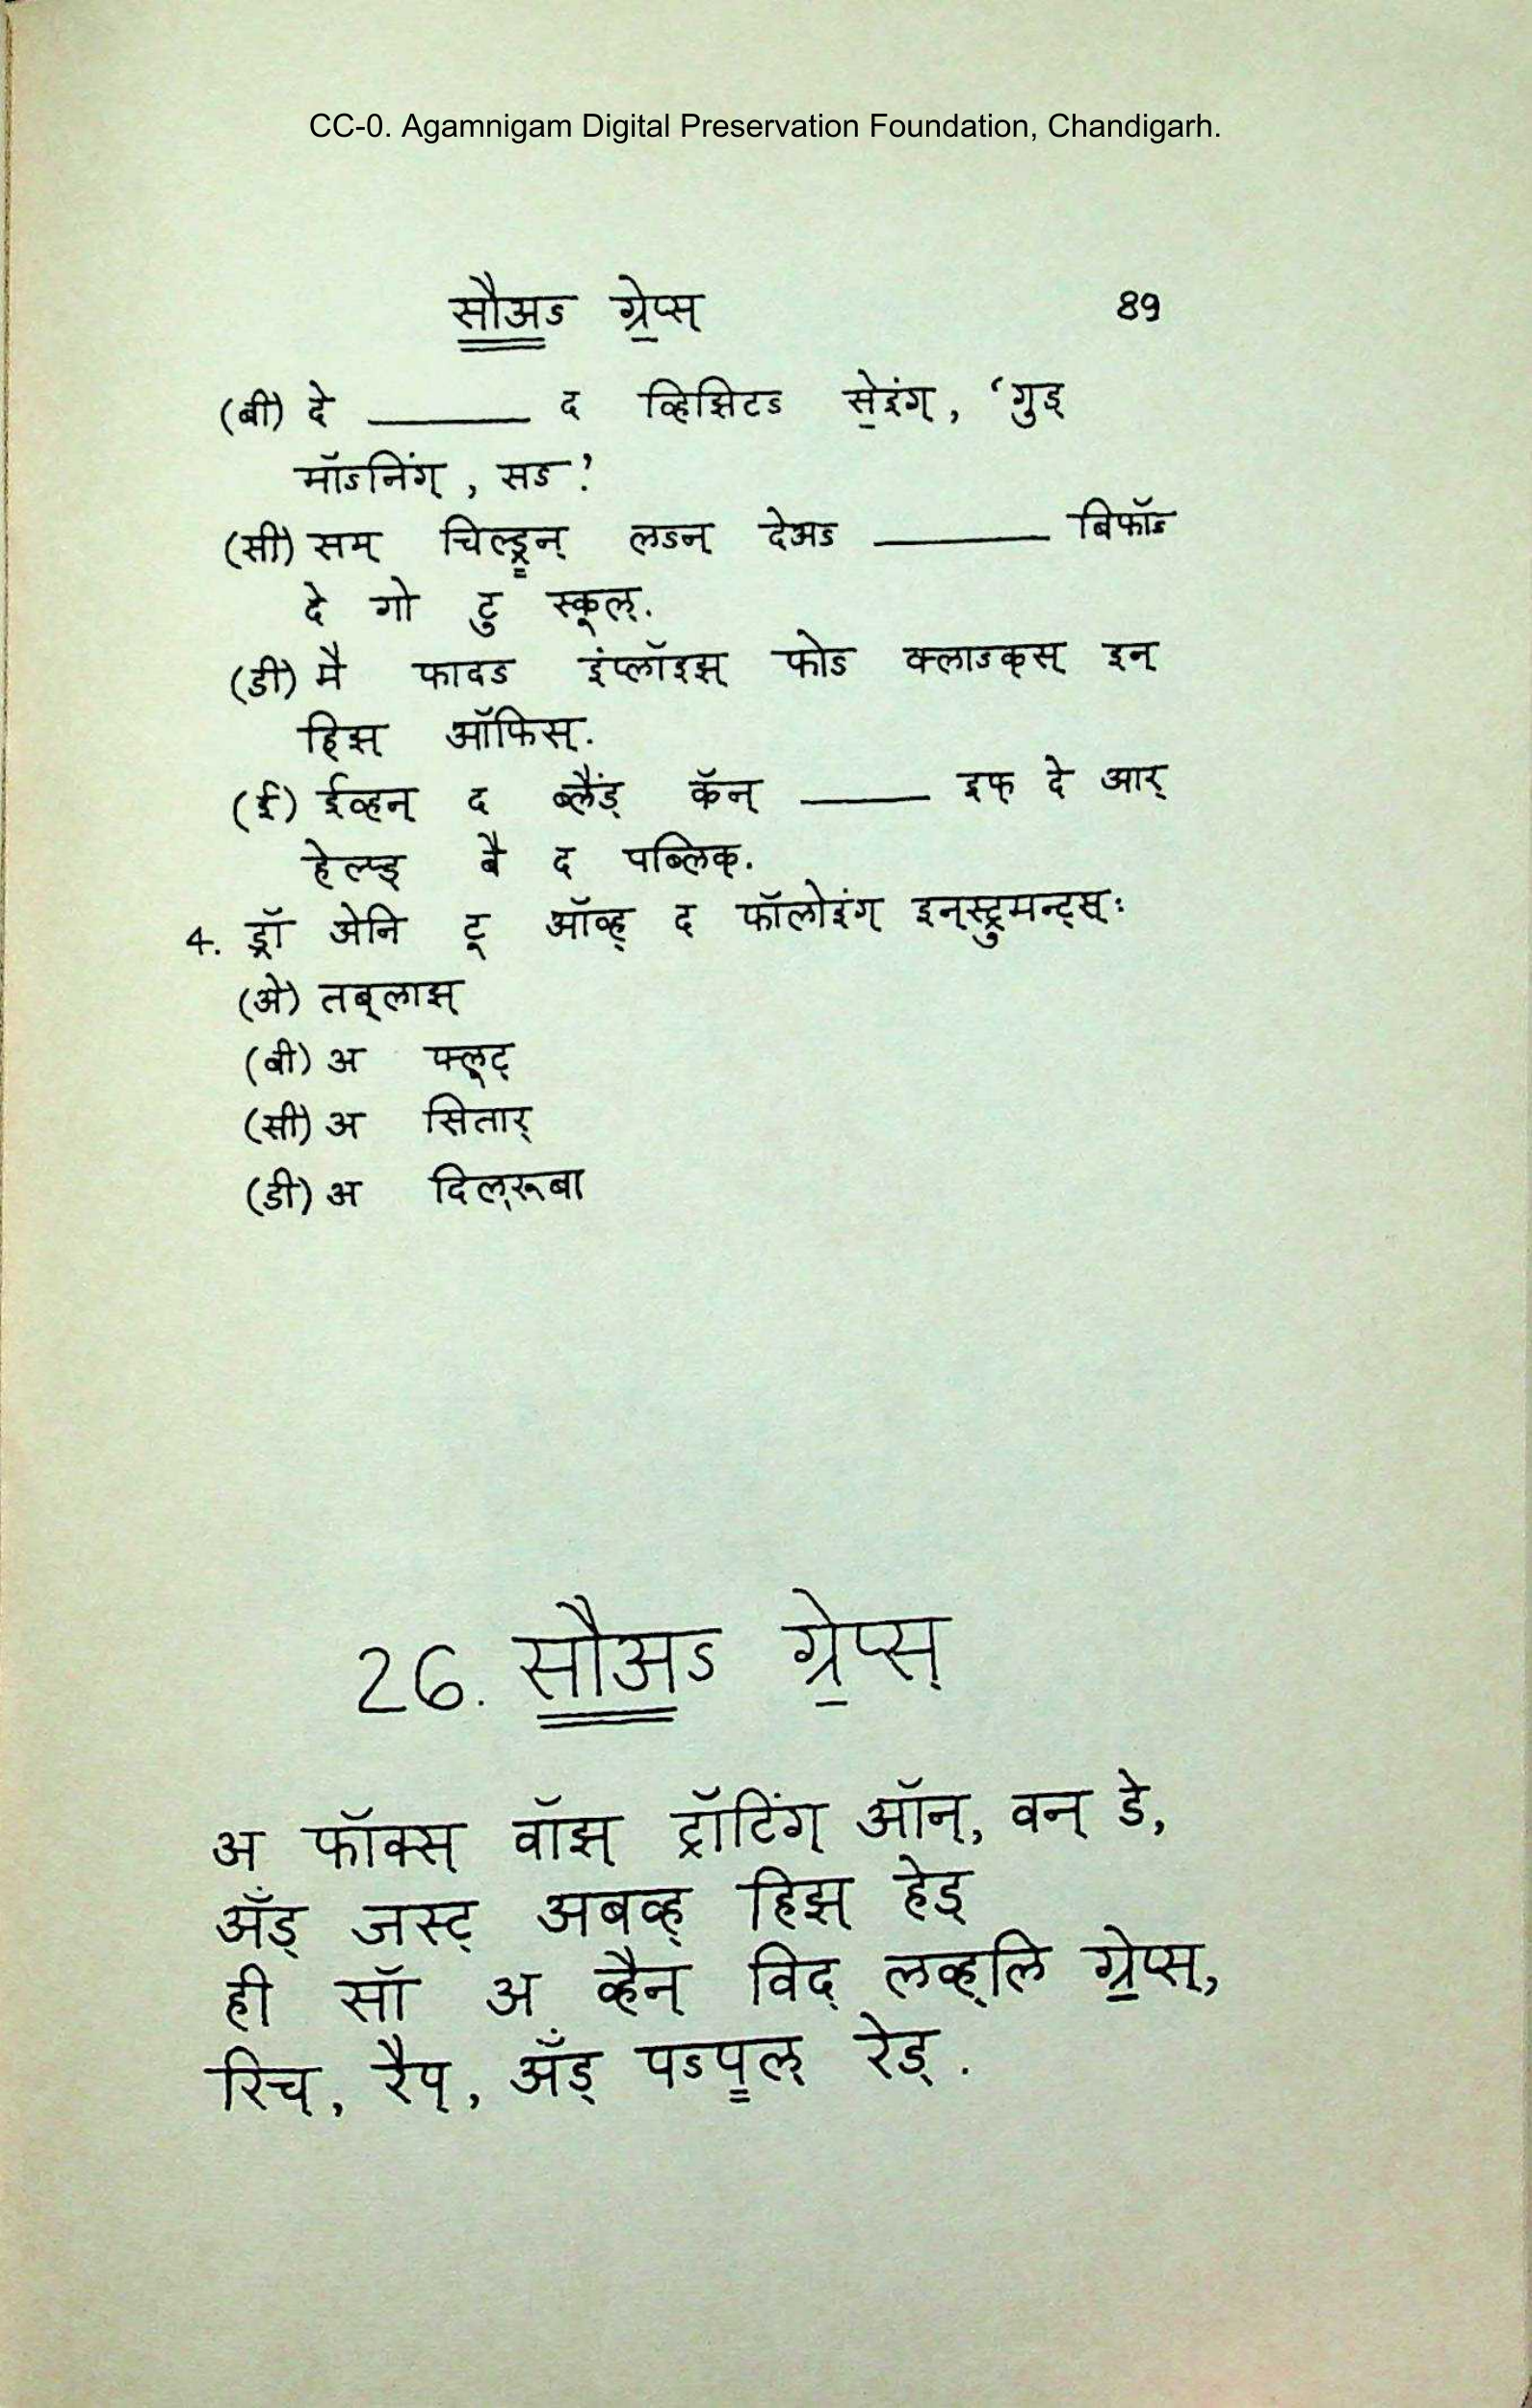 CC-0. Agamnigam Digital Preservation Foundation, Chandigarh.
सौअऽ ग्रेप्स् 89
(बी) दे ______ द व्हिझिटऽ सेइंग्, ‘गुड्
मॉऽनिंग्, सऽ’.
(सी) सम् चिल्ड्रन् लऽन् देअऽ ______ बिफॉऽ
दे गो टु स्कूल्.
(डी) मै फादऽ इंप्लॉइझ् फोऽ क्लाऽक्स् इन्
हिझ् ऑफिस्.
(ई) ईव्हन् द ब्लैंड् कॅन् ______ इफ् दे आर्
हेल्प्ड् बै द पब्लिक्.
4. ड्रॉ ॲनि टू ऑव्ह् द फॉलोइंग् इन्स्ट्रुमन्ट्स्:
(अे) तब्लाझ्
(बी) अ फ्लूट्
(सी) अ सितार्
(डी) अ दिल्रूबा
26. सौअऽ ग्रेप्स्
अ फॉक्स् वॉझ् ट्रॉटिंग् ऑन्, वन् डे,
अँड् जस्ट् अबव्ह् हिझ् हेड्
ही सॉ अ व्हैन् विद् लव्ह्लि ग्रेप्स्,
रिच्, रैप्, अँड् पऽपल् रेड्.